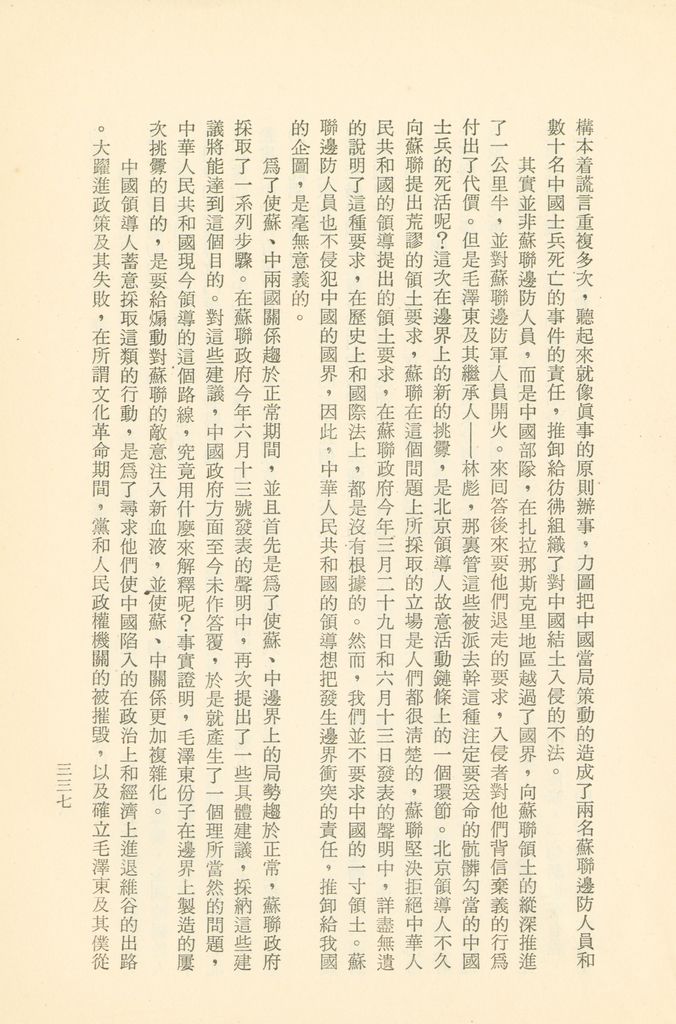 構本着謊言重複多次，聽起來就像眞事的原則辦事，力圖把中國當局策動的造成了兩名蘇聯邊防人員和
數十名中國士兵死亡的事件的責任，推卸給彷彿組織了對中國結土入侵的不法。
其實並非蘇聯邊防人員，而是中國部隊，在扎拉那斯克里地區越過了國界，向蘇聯領土的縱深推進
了一公里半，並對蘇聯邊防軍人員開火。來回答後來要他們退走的要求，入侵者對他們背信棄義的行爲
付出了代價。但是毛澤東及其繼承人——林彪，那裏管這些被派去幹這種注定要送命的骯髒勾當的中國
士兵的死活呢？這次在邊界上的新的挑釁，是北京領導人故意活動鏈條上的一個環節。北京領導人不久
向蘇聯提出荒謬的領土要求，蘇聯在這個問題上所採取的立場是人們都很淸楚的，蘇聯堅決拒絕中華人
民共和國的領導提出的領土要求，在蘇聯政府今年三月二十九日和六月十三日發表的聲明中，詳盡無遺
的說明了這種要求，在歷史上和國際法上，都是沒有根據的。然而，我們並不要求中國的一寸領土。蘇
聯邊防人員也不侵犯中國的國界，因此，中華人民共和國的領導想把發生邊界衝突的責任，推卸給我國
的企圖，是毫無意義的。
爲了使蘇、中兩國關係趨於正常期間，並且首先是爲了使蘇、中邊界上的局勢趨於正常，蘇聯政府
採取了一系列步驟。在蘇聯政府今年六月十三號發表的聲明中，再次提出了一些具體建議，採納這些建
議將能達到這個目的。對這些建議，中國政府方面至今未作答覆，於是就產生了一個理所當然的問題，
中華人民共和國現今領導的這個路線，究竟用什麼來解釋呢？事實證明，毛澤東份子在邊界上製造的屢
次挑釁的目的，是要給煽動對蘇聯的敵意注入新血液，並使蘇、中關係更加複雜化。
中國領導人蓄意採取這類的行動，是爲了尋求他們使中國陷入的在政治上和經濟上進退維谷的出路
。大躍進政策及其失敗，在所謂文化革命期間，黨和人民政權機關的被摧毀，以及確立毛澤東及其僕從
三三七